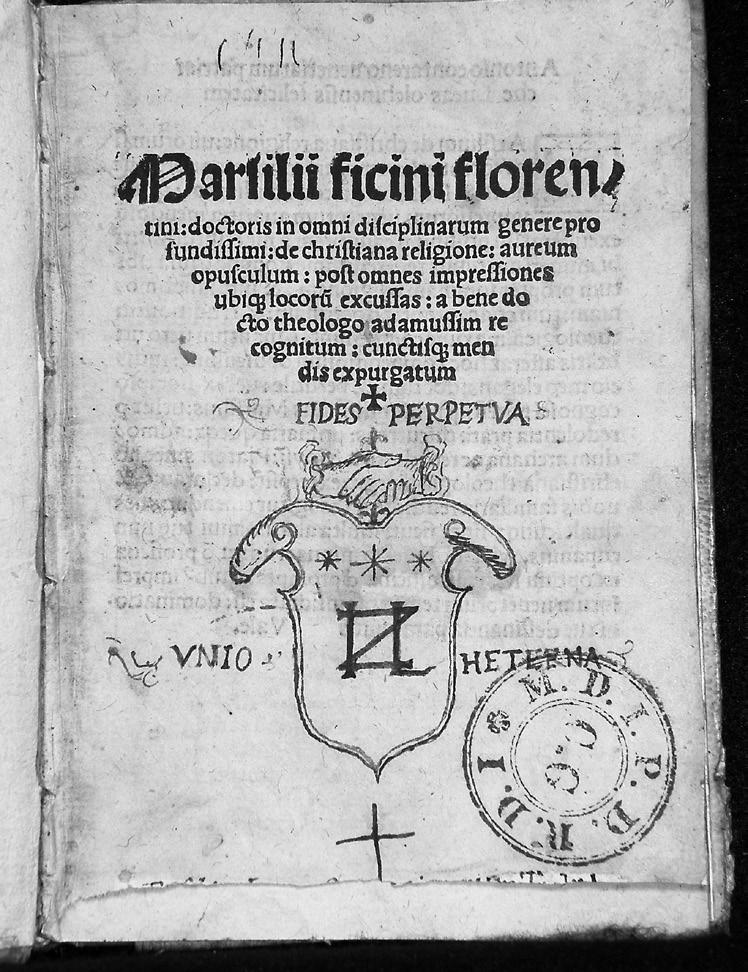 Marsilii ficini floren⸗
tini: doctoris in omni disciplinarum genere pro
fundissimi: de christiana religione: aureum
opusculum: post omnes impressiones
ubiqꝫ locorū excussas: a bene do
cto theologo adamussim re
cognitum: cunctisqꝫ men
dis expurgatum
FIDES PERPETVA
VNIO HETERNA
M. D. I. P. D. R. D. I